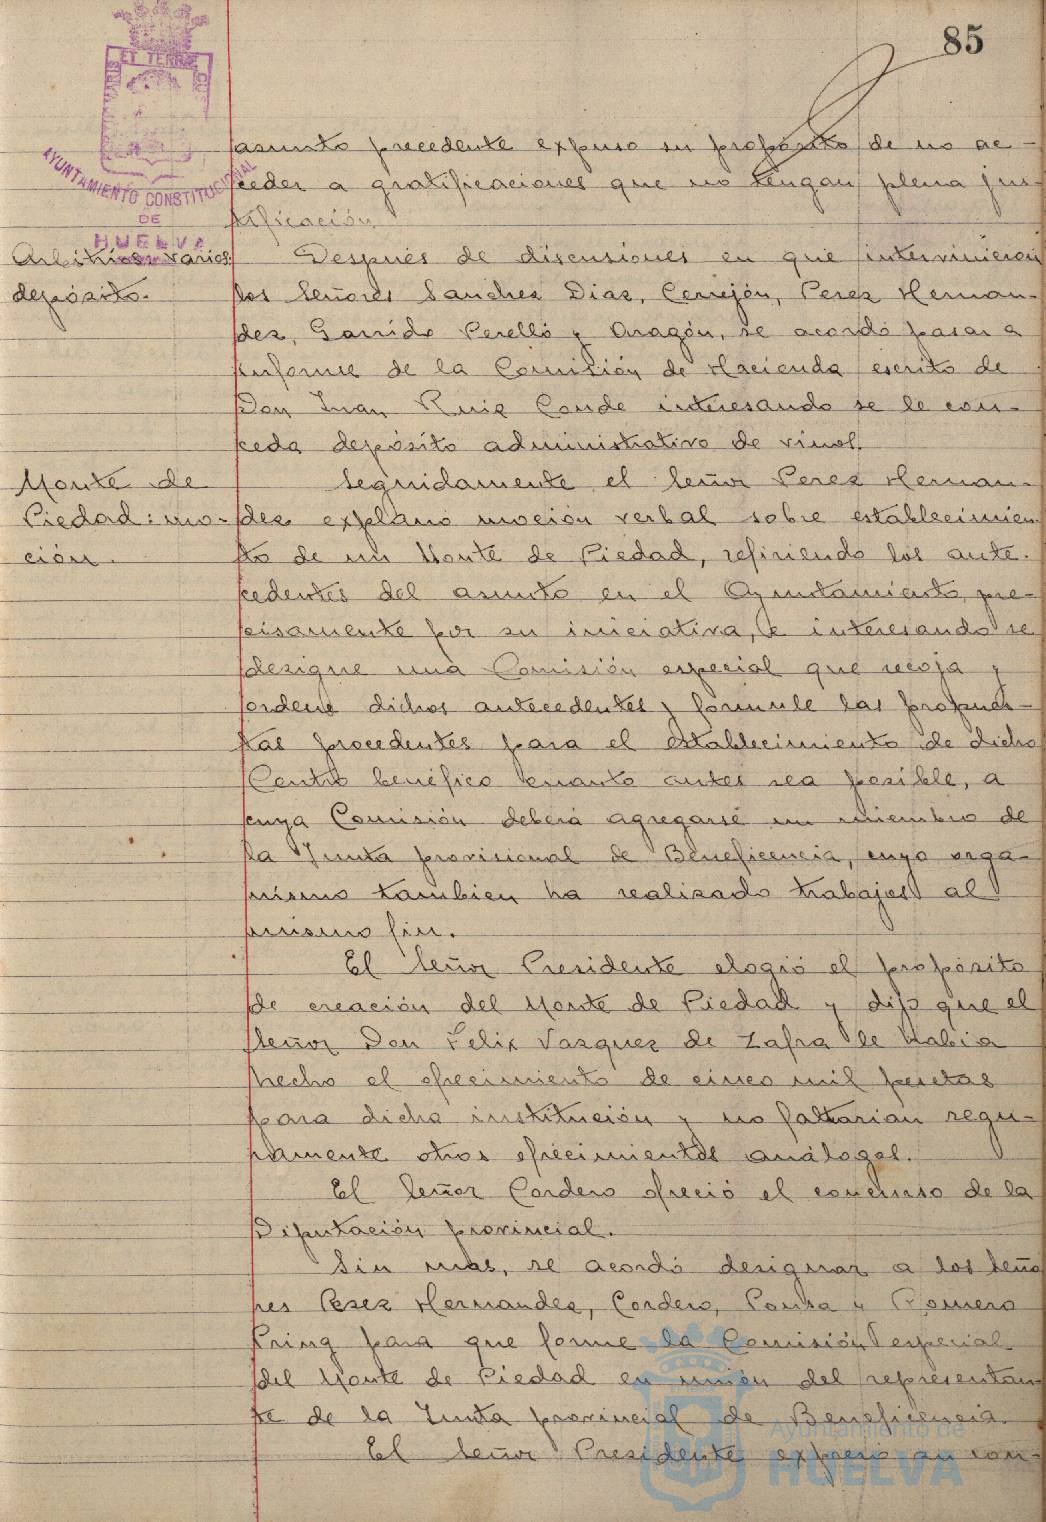 85
PORTUS MARIS ET TERRAE CUSTODIA
AYUNTAMIENTO CONSTITUCIONAL
DE
HUELVA
asunto precedente expuso su propósito de no ac-
ceder a gratificaciones que no tengan plena jus-
tificación.
Arbitrios varios:
depósito.
Después de discusiones en que intervinieron
los Señores Sanchez Diaz, Cerrejón, Perez Hernan-
dez, Garrido Perelló y Aragón, se acordó pasar a
informe de la Comisión de Hacienda escrito de
Don Juan Ruiz Conde interesando se le con-
ceda depósito administrativo de vinos.
Monte de
Piedad: mo-
ción.
Seguidamente el Señor Perez Hernan-
dez explanó moción verbal sobre establecimien-
to de un Monte de Piedad, refiriendo los ante-
cedentes del asunto en el Ayuntamiento, pre-
cisamente por su iniciativa, e interesando se
designe una Comisión especial que recoja y
ordene dichos antecedentes y formule las propues-
tas procedentes para el establecimiento de dicho
Centro benéfico cuanto antes sea posible, a
cuya Comisión deberá agregarse un miembro de
la Junta provisional de Beneficencia, cuyo orga-
nismo tambien ha realizado trabajos al
mismo fin.
El Señor Presidente elogió el propósito
de creación del Monte de Piedad y dijo que el
Señor Don Felix Vazquez de Zafra le habia
hecho el ofrecimiento de cinco mil pesetas
para dicha institución y no faltarian segu-
ramente otros ofrecimientos análogos.
El Señor Cordero ofreció el concurso de la
Diputación provincial.
Sin mas, se acordó designar a los Seño
res Perez Hernandez, Cordero, Pousa y Romero
Pring para que forme la Comisión especial
del Monte de Piedad en unión del representan-
te de la Junta provincial de Beneficencia.
El Señor Presidente expresó su con-
Ayuntamiento de
HUELVA